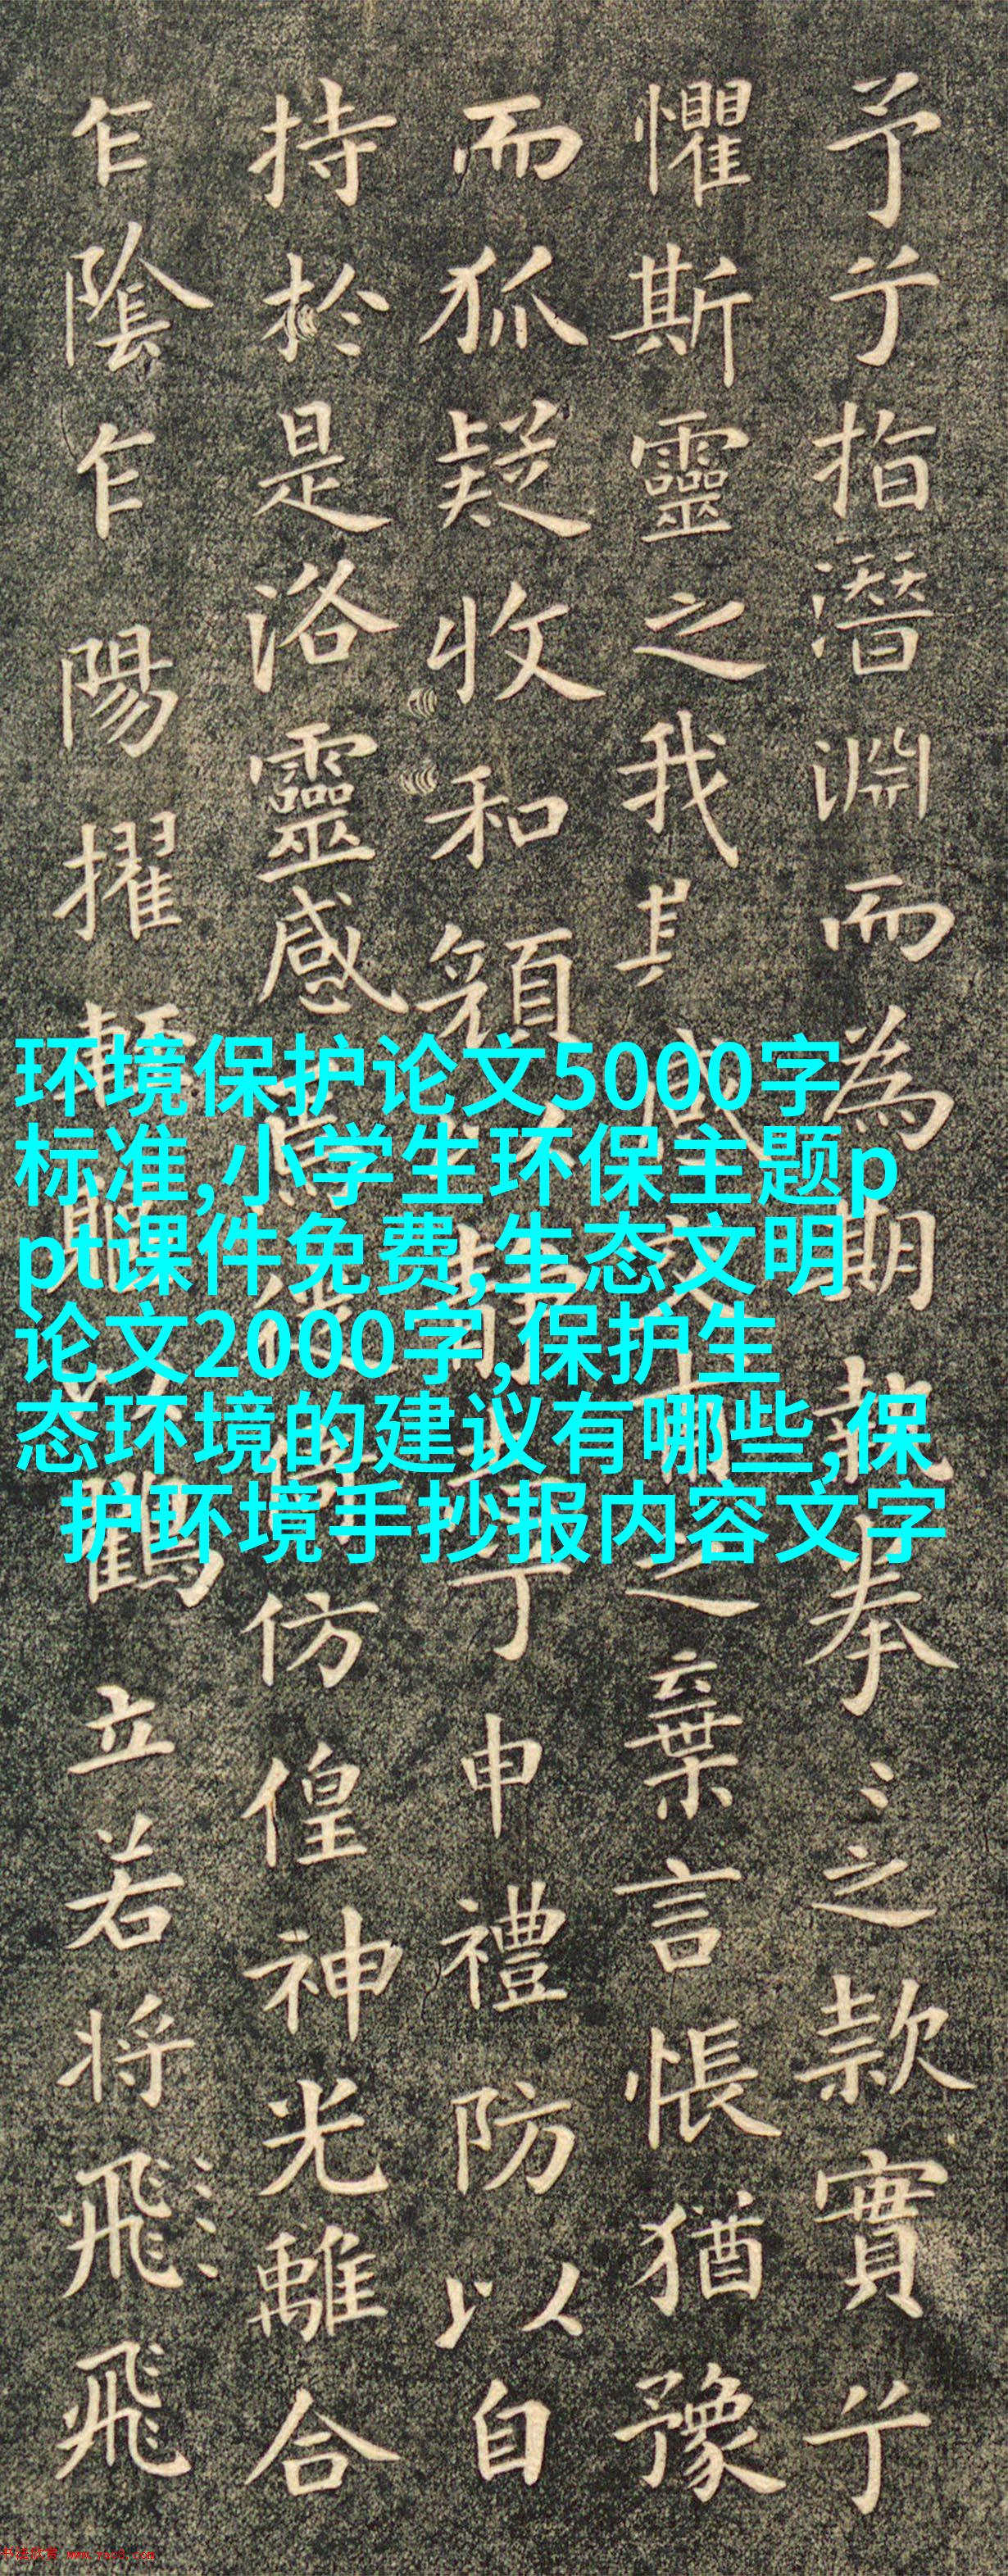 予兮指潛淵而為期執拳〻之款實兮
懼斯靈之我其交之棄言悵猶豫
而狐疑收和顏靜兮申禮防以自
持於是洛靈感焉仿偟神光離合
乍陰乍陽擢輕軀鶴立若將飛飛
环境保护论文5000字
标准,小学生环保主题p
pt课件免费,生态文明
论文2000字,保护生
态环境的建议有哪些,保
护环境手抄报内容文字